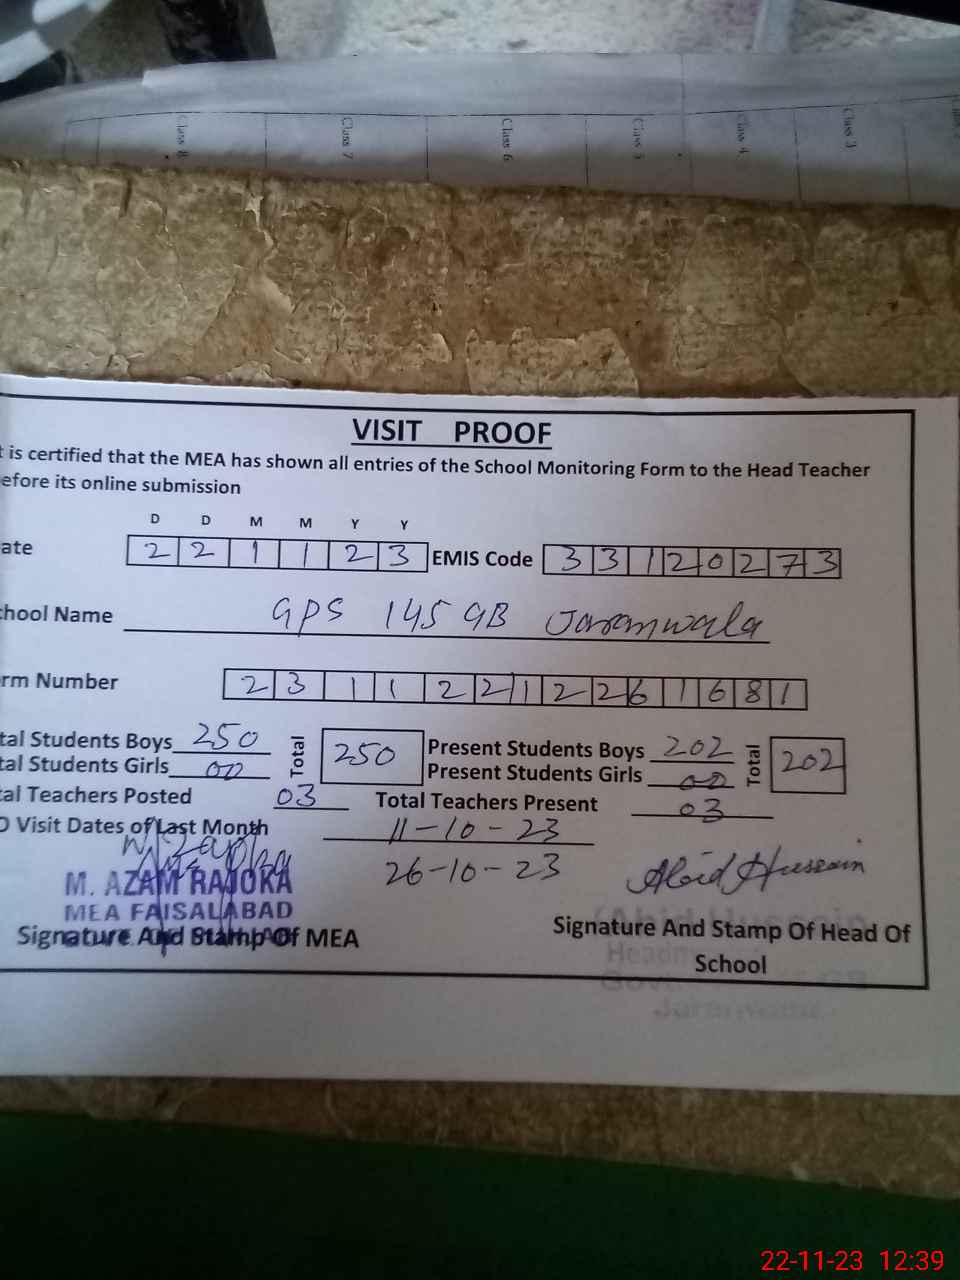 Class 8 Class 7 Class 6 Class 5 Class 4 Class 3
VISIT PROOF
t is certified that the MEA has shown all entries of the School Monitoring Form to the Head Teacher
efore its online submission
D D M M Y Y
ate 2 2 1 1 2 3 EMIS Code 3 3 1 2 0 2 7 3
hool Name GPS 145 GB Jaranwala
rm Number 2 3 1 1 2 2 1 2 2 6 1 6 8 1
tal Students Boys 250 Total 250 Present Students Boys 202 Total 202
tal Students Girls 00 Present Students Girls 00
al Teachers Posted 03 Total Teachers Present 03
O Visit Dates of Last Month 11-10-23
26-10-23 Abid Hussain
M. AZAM RAJOKA
MEA FAISALABAD
Signature And Stamp Of MEA Signature And Stamp Of Head Of
School
22-11-23 12:39